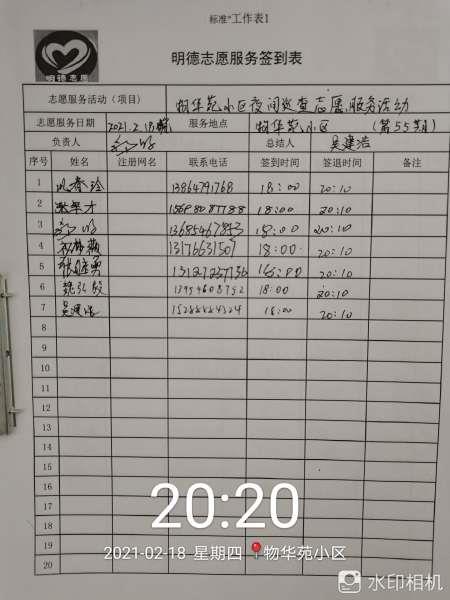 标准"工作表1
明德志愿
明德志愿服务签到表
志愿服务活动（项目） 物华苑小区夜间巡查志愿服务活动
志愿服务日期 2021.2.18 服务地点 物华苑小区 （第55期）
负责人 总结人 吴建浩
序号 姓名 注册网名 联系电话 签到时间 签退时间 备注
1 13864791768 18:00 20:10
2 18:00 20:10
3 13685467843 18:00 20:10
4 13176631509 18:00 20:10
5 18:00 20:10
6 魏弘毅 18:00 20:10
7 吴建浩 18:00 20:10
8
9
10
11
12
13
14
15
16
17
18
19
20
20:20
2021-02-18 星期四 物华苑小区
水印相机